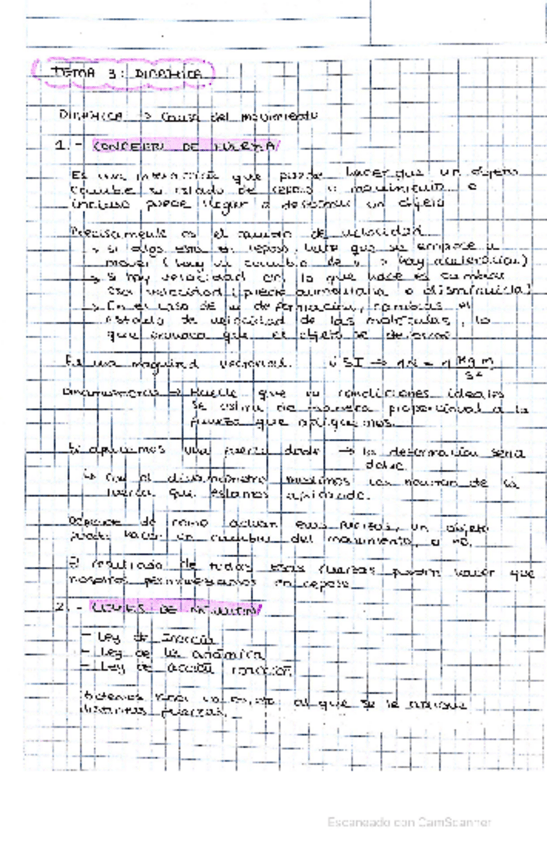 TEMA 3: DINÁMICA
DINÁMICA → Causa del movimiento
1.- CONCEPTO DE FUERZA
Es una interacción que puede hacer que un objeto
cambie su estado de reposo o movimiento o
incluso puede llegar a deformar un objeto
Precisamente es el cambio de velocidad.
→ Si algo está en reposo, hace que se empiece a
mover (hay un cambio de v → hay aceleración)
→ Si hay velocidad en lo que hace es cambiar
esa velocidad (puede aumentarla o disminuirla)
→ En el caso de la deformación, cambias el
estado de velocidad de las moléculas, lo
que provoca que el objeto se deforme.
Es una magnitud vectorial. SI → 1N = 1 Kg m
s²
Dinamómetro → Muelle que en condiciones ideales
se estira de manera proporcional a la
fuerza que apliquemos.
Si aplicamos una fuerza doble → la deformación será
doble.
↳ Con el dinamómetro medimos la
fuerza que estamos aplicando.
Depende de como actúan esas fuerzas, un objeto
puede hacer un cambio del movimiento, o no.
El resultado de todas esas fuerzas pueden hacer que
nosotros permanezcamos en reposo.
2.- LEYES DE NEWTON
- Ley de Inercia
- Ley de la dinámica
- Ley de acción reacción
al que se le aplique
distintas fuerzas.
Escaneado con CamScanner